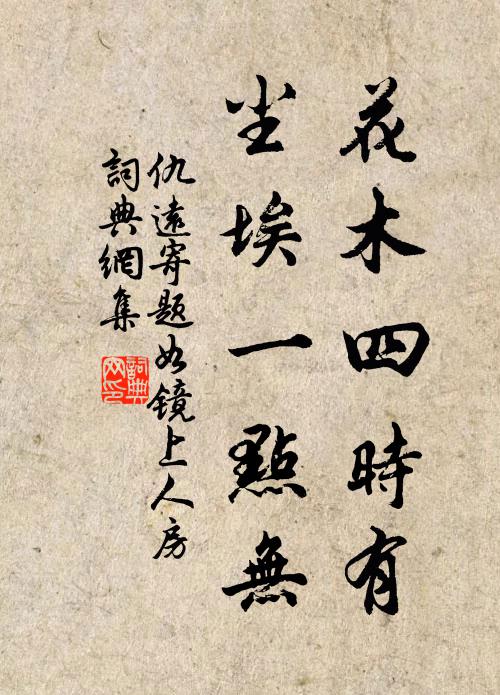 花木四時有
尘埃一點無
仇遠寄題如鏡上人房
詞典網集
詞典網印